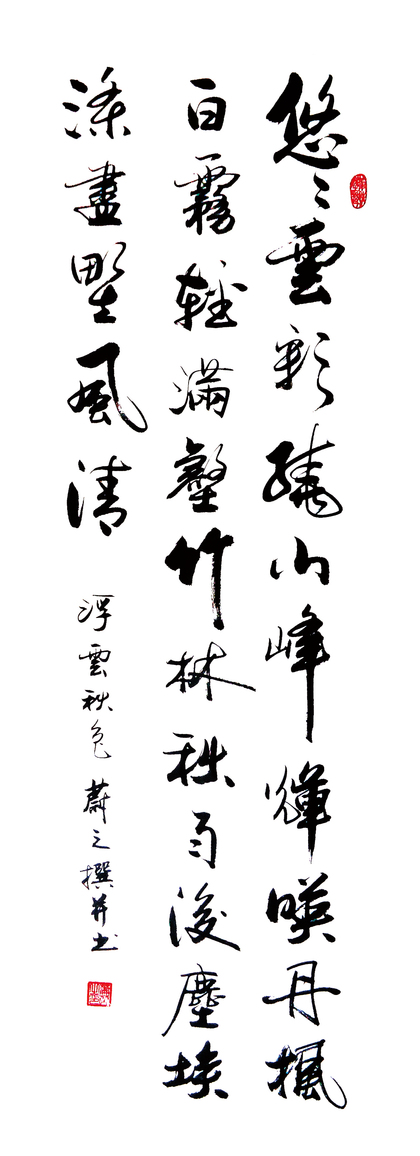 悠〻雲彩繞山峰輝暎丹楓
白霧輕滿壑竹林秋雨後塵埃
滌盡野風清
浮雲秋色 蔚之撰并书